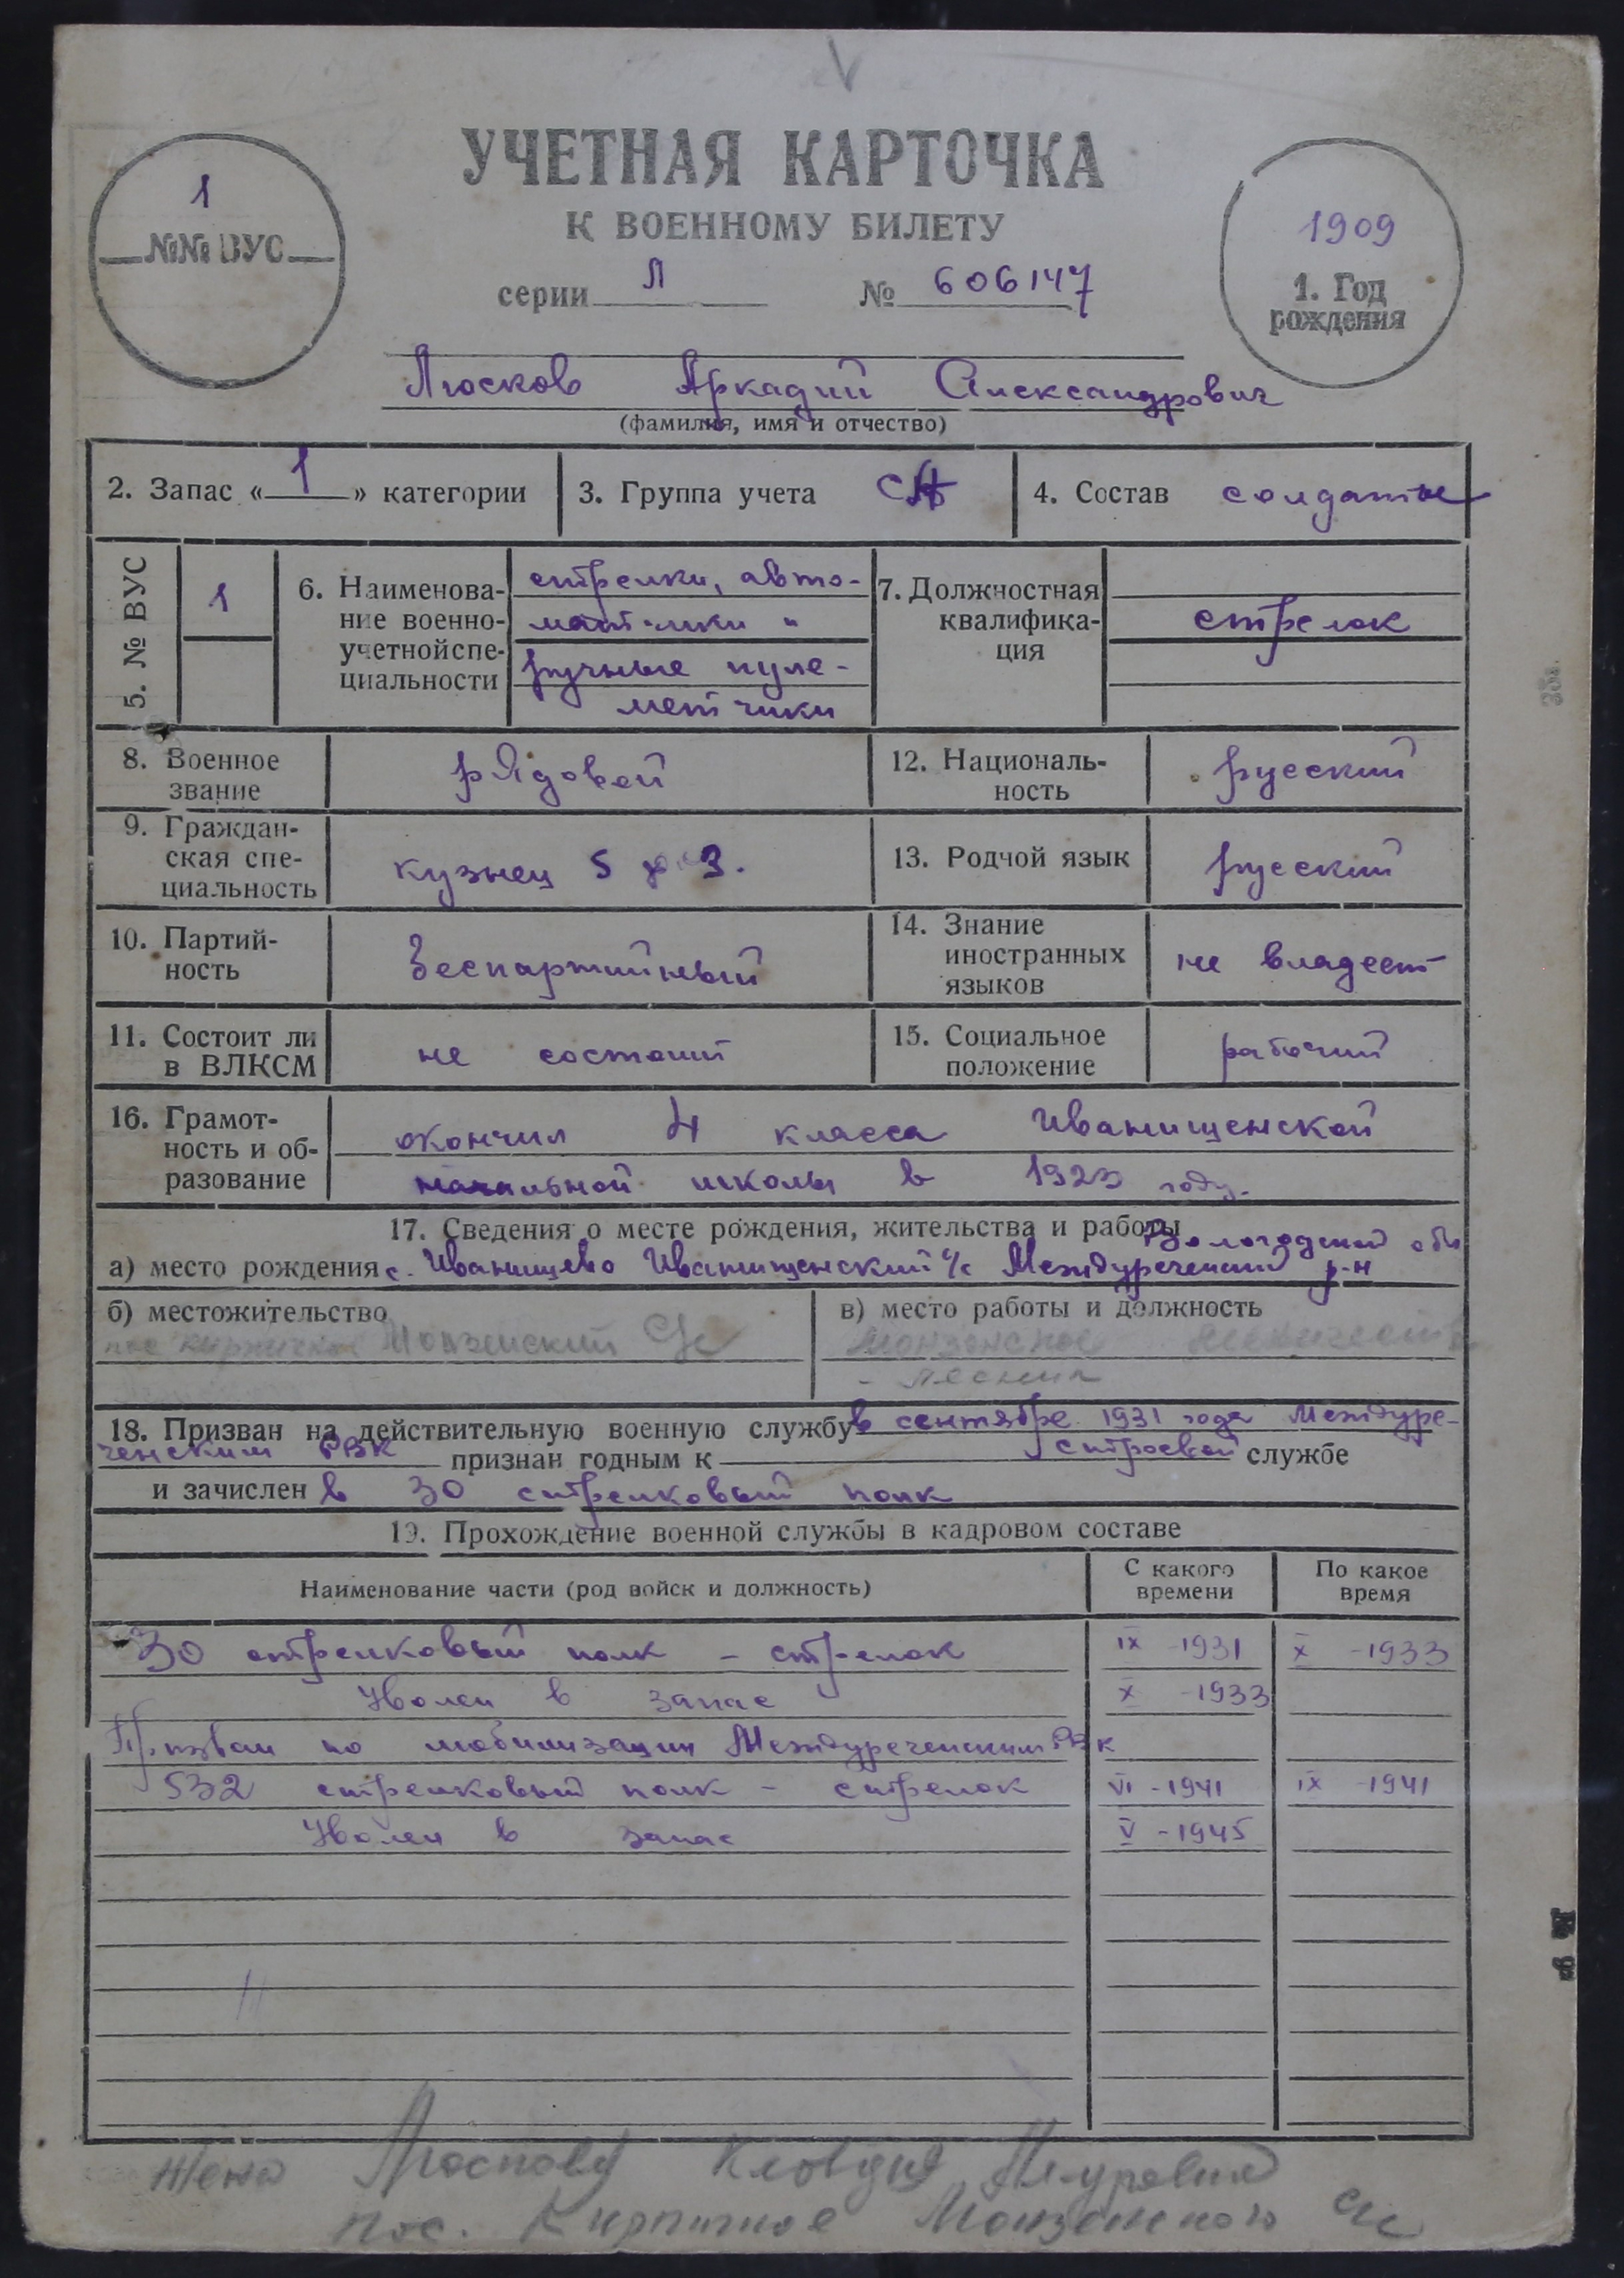 УЧЕТНАЯ КАРТОЧКА
К ВОЕННОМУ БИЛЕТУ
1
№№ ВУС
серии Л № 606147
1909
1. Год
рождения
Люсков Аркадий Александрович
(фамилия, имя и отчество)
2. Запас « 1 » категории
3. Группа учета СА
4. Состав солдаты
5. № ВУС
1
6. Наименова-
ние военно-
учетной спе-
циальности
стрелки, авто-
матчики и
ручные пуле-
метчики
7. Должностная
квалифика-
ция
стрелок
8. Военное
звание
рядовой
12. Националь-
ность
русский
9. Граждан-
ская спе-
циальность
кузнец 5
13. Родной язык
русский
10. Партий-
ность
беспартийный
14. Знание
иностранных
языков
не владеет
11. Состоит ли
в ВЛКСМ
не состоит
15. Социальное
положение
рабочий
16. Грамот-
ность и об-
разование
окончил 4 класса Иванищенской
начальной школы в 1923 году.
17. Сведения о месте рождения, жительства и работы
Вологодской обл
а) место рождения с. Иванищево Иванищенский с/с Междуреченский р-н
б) местожительство
пос Кирпичное Монзенский с/с
в) место работы и должность
Монзенское
18. Призван на действительную военную службу в сентябре 1931 года Междуре-
ченским РВК признан годным к строевой службе
и зачислен в 30 стрелковый полк
19. Прохождение военной службы в кадровом составе
Наименование части (род войск и должность)
С какого
времени
По какое
время
30 стрелковый полк - стрелок IX - 1931 X - 1933
Уволен в запас X - 1933
Призван по мобилизации Междуреченским РВК
532 стрелковый полк - стрелок VI - 1941 IX - 1941
Уволен в запас V - 1945
Жена Клавдия
пос. Кирпичное Монзенского с/с